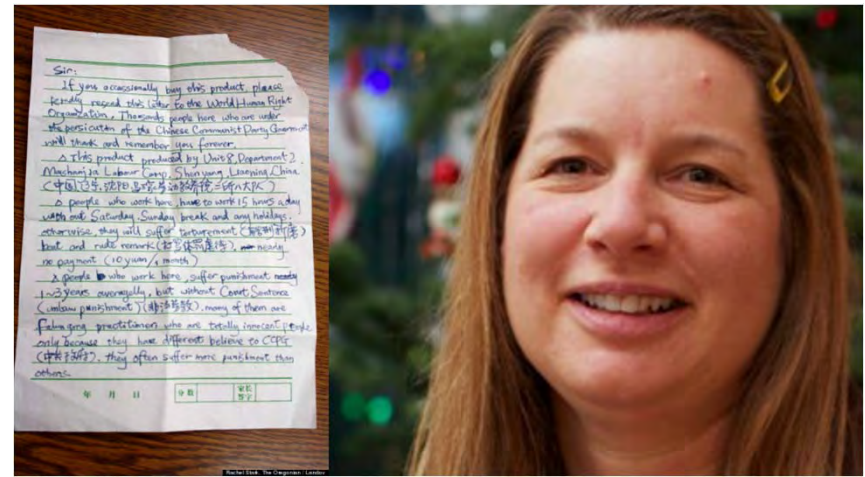 Sir:
If you occassionally buy this product, please
kindly resend this letter to the World Human Right
Organization. Thousands people here who are under
the persicution of the Chinese Communist Party Goverment
will thank and remember you forever.
△ This product produced by Unit 8, Department 2,
Machanjia Labour Camp, Shenyang, Liaoning, China
(中国 辽宁 沈阳 马三家 劳动教养 二所八大队)
△ people who work here, have to work 15 hours a day
with out Saturday, Sunday break and any holidays,
otherwise, they will suffer torturement
beat and rude remark nearly
no payment (10 yuan/month)
△ people who work here, suffer punishment nearly
1~3 years averagelly, but without Court Sentence
(unlaw punishment) (非法劳教), many of them are
Falungong practitioner, who are totally innocent people
only because they have different believe to CCPG
they often suffer more punishment than
others.
年 月 日 分数 家长签字
Rachel Stark, The Oregonian / Landov